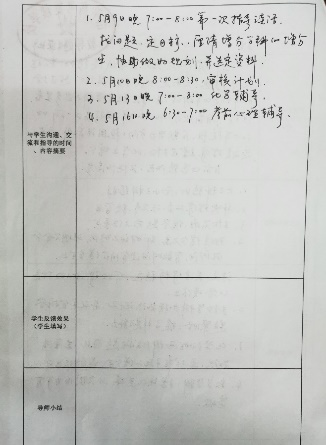 1. 5月9日晚 7:00-8:00 第一次指导谈话.
找问题、定目标、
生,协助做的规划,并送去资料.
2. 5月10日晚 8:00-8:30 审核计划.
3. 5月13日晚 7:00-8:00 化学辅导.
4. 5月16日晚 6:30-7:00 考前心理辅导.
与学生沟通、交
流和指导的时间
、内容摘要
学生反馈效果
(学生填写)
导师小结